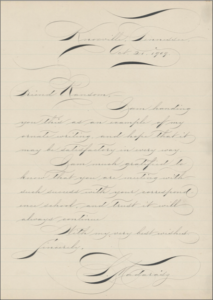 Oct. 25, 1909
Friend Ransom:
I am handing
you this as an example of my
ornate writing and hope that it
may be satisfactory in every way.
I am much gratified to
know that you are meeting with
such success with your
school and trust it will
always continue.
With my very best wishes
Sincerely,
Madarasz